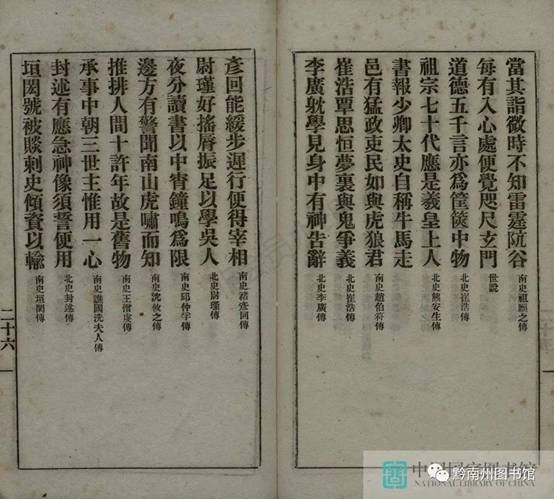 當其詣微時不知雷霆阬谷 南史祖暅之傳
每有入心處便覺咫尺玄門 世說
道德五千言亦為篋篋中物 北史崔浩傳
祖宗七十代應是羲皇上人 北史熊安生傳
書報少卿太史自稱牛馬走
邑有猛政吏民如與虎狼君 南史趙伯符傳
崔浩覃思恒夢裏與鬼爭義 北史崔浩傳
李廣躭學見身中有神告辭 北史李廣傳
彥回能緩步遲行便得宰相 南史褚彥回傳
尉瑾好搖脣振足以學吳人 北史尉瑾傳
夜分讀書以中宵鐘鳴為限 南史邱仲孚傳
邊方有警聞南山虎嘯而知 南史沈攸之傳
推排人間十許年故是舊物 南史王僧虔傳
承事中朝三世主惟用一心 南史譙國洗夫人傳
封述有應急神像須誓便用 北史封述傳
垣閎號被賧刺史傾資以輸 南史垣閎傳
二十六
中國國家圖書館
NATIONAL LIBRARY OF CHINA
黔南州图书馆